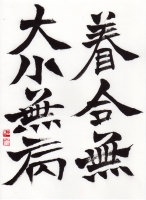 養合無
大小無病